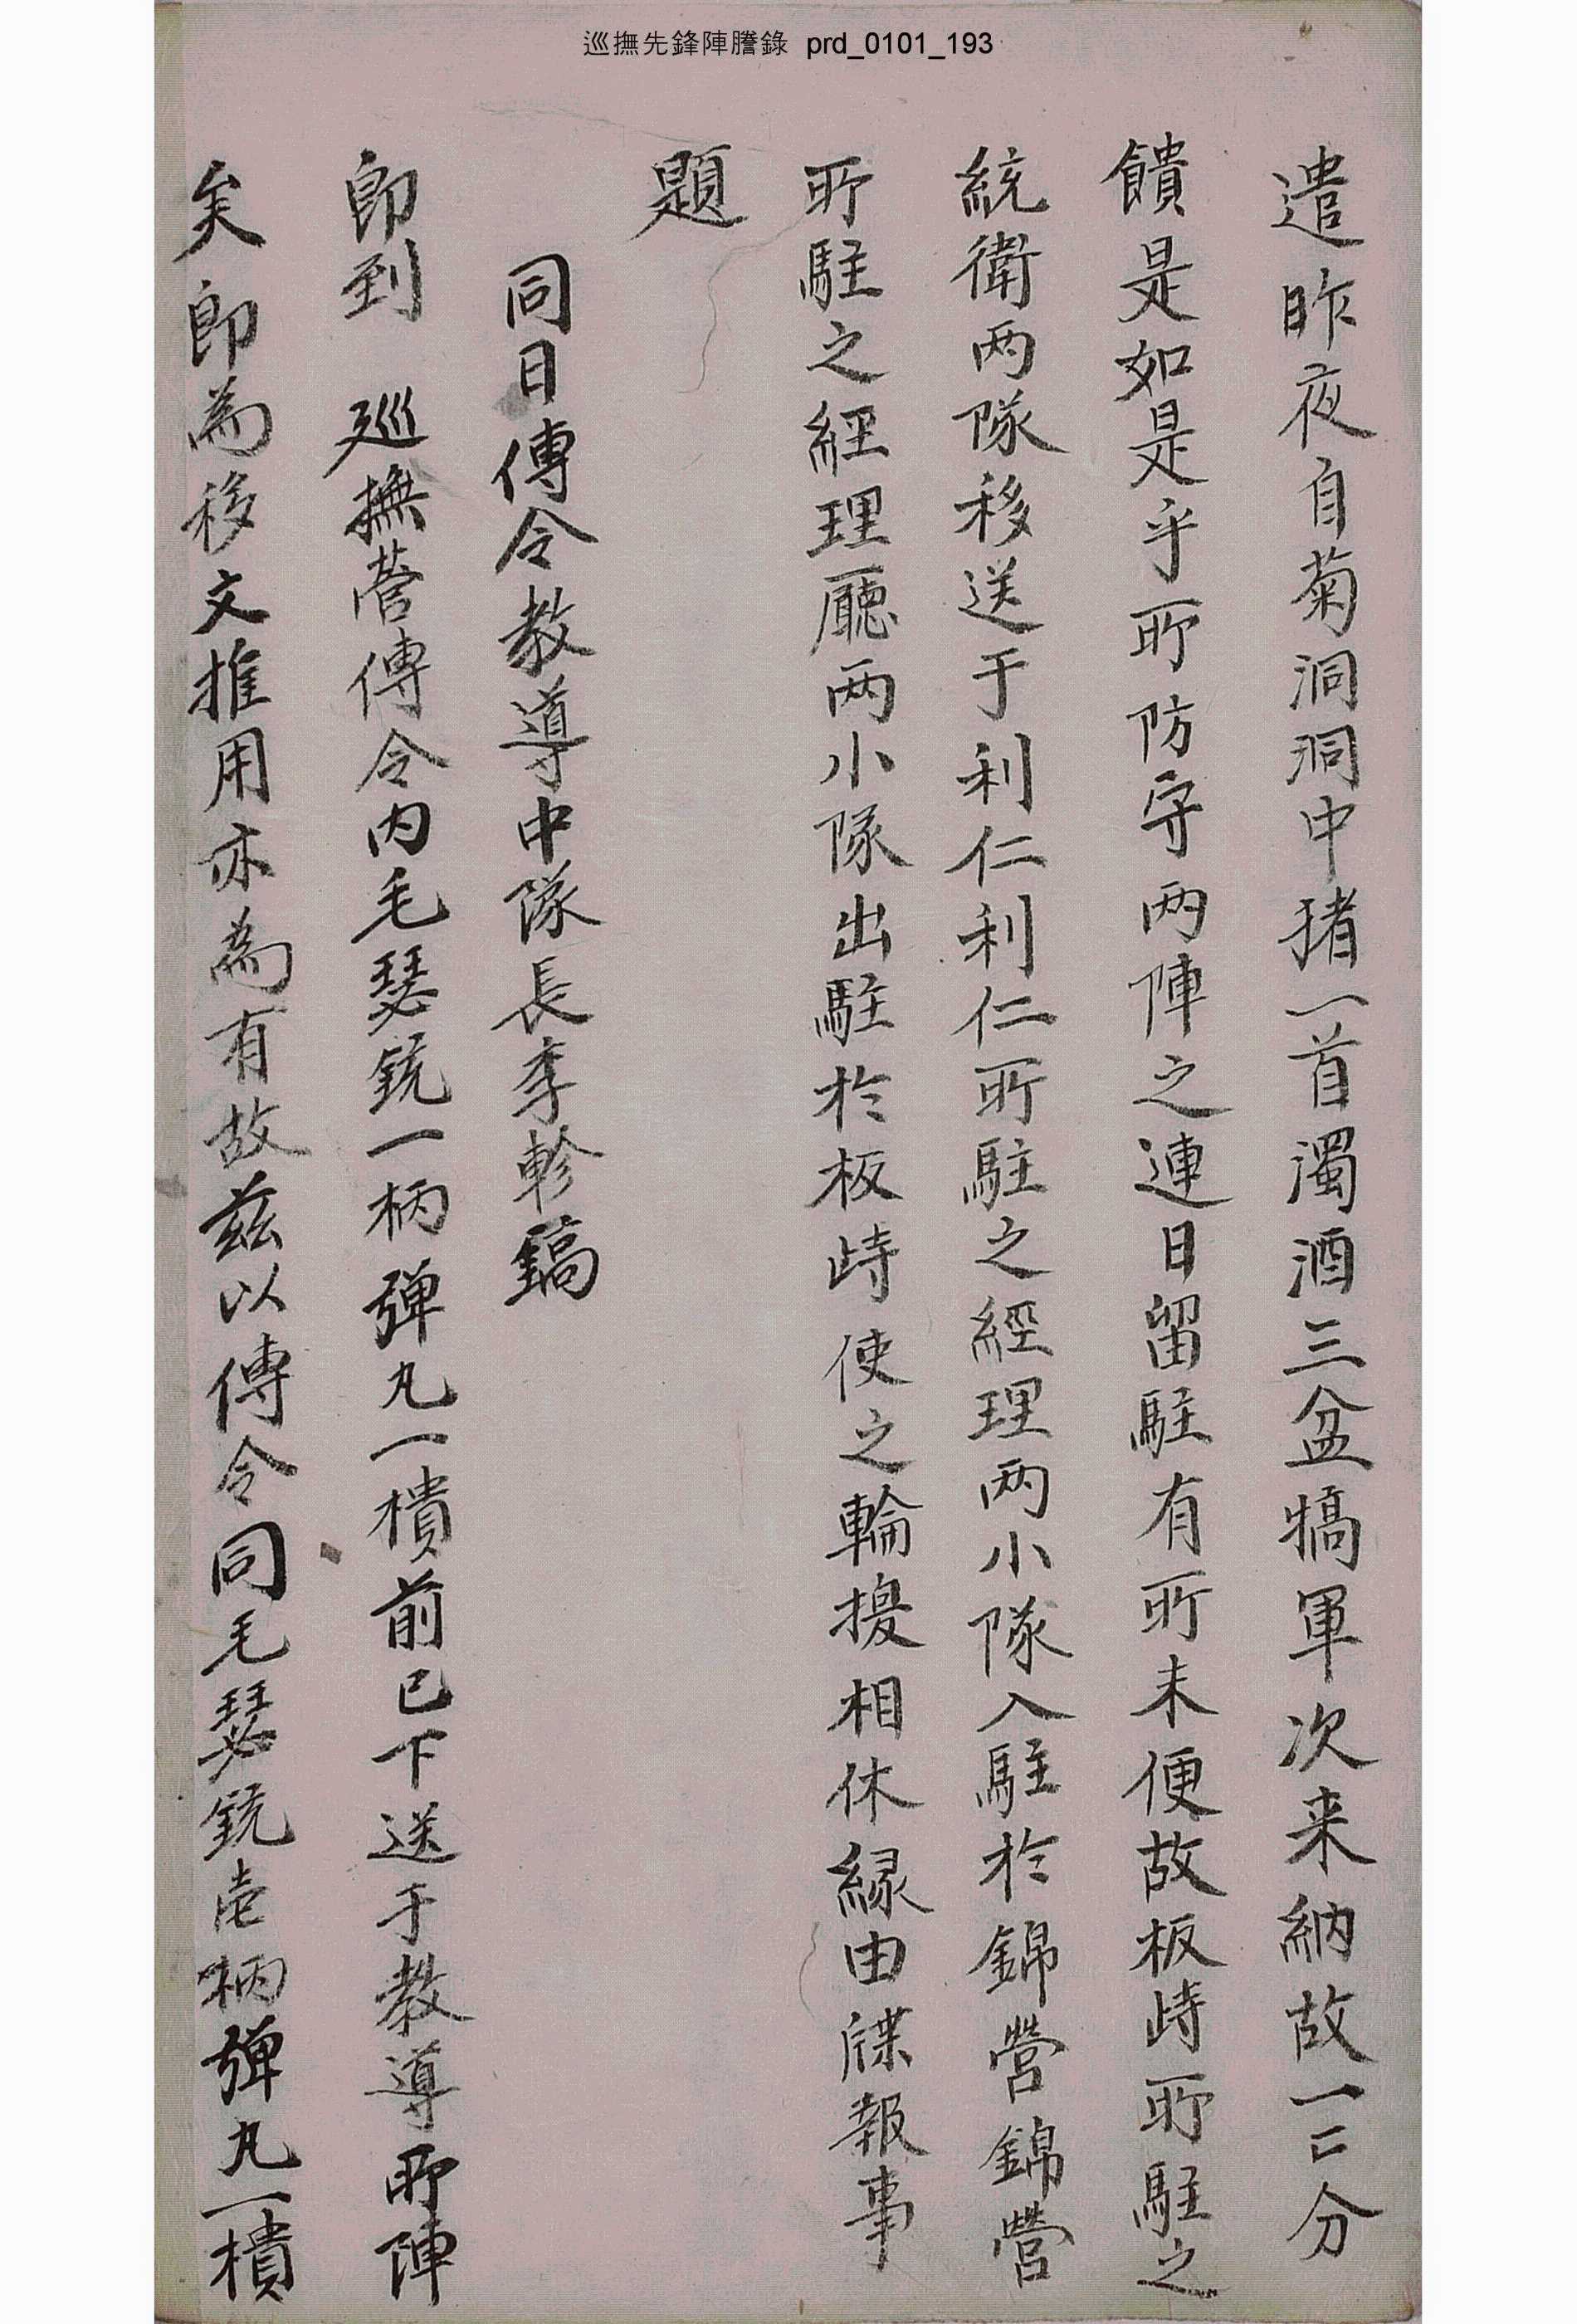 巡撫先鋒陣謄錄 prd_0101_193
遣昨夜自菊洞洞中猪一首濁酒三盆犒軍次来納故一二分
饋是如是乎所防守两陣之連日留駐有所未便故板峙所駐之
統衛两隊移送于利仁利仁所駐之經理两小隊入駐於錦營錦營
所駐之經理廳两小隊出駐於板峙使之輪換相休緣由牒報事
題
同日傳令教導中隊長李軫鎬
即到 巡撫營傳令內毛瑟銃一柄弾丸一樻前已下送于教導所陣
矣即為移文推用亦為有故玆以傳令同毛瑟銃壱柄弾丸一樻